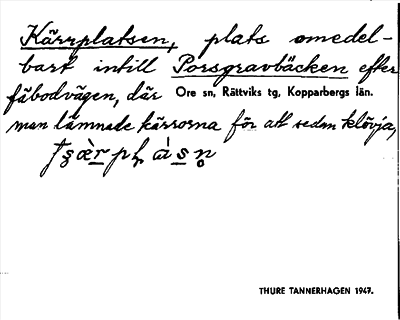 Kärrplatsen, plats omedel-
bart intill Porsgravbäcken efter
fäbodvägen, där Ore sn, Rättviks tg, Kopparbergs län.
man lämnade kärrorna för att sedan klövja,
THURE TANNERHAGEN 1947.